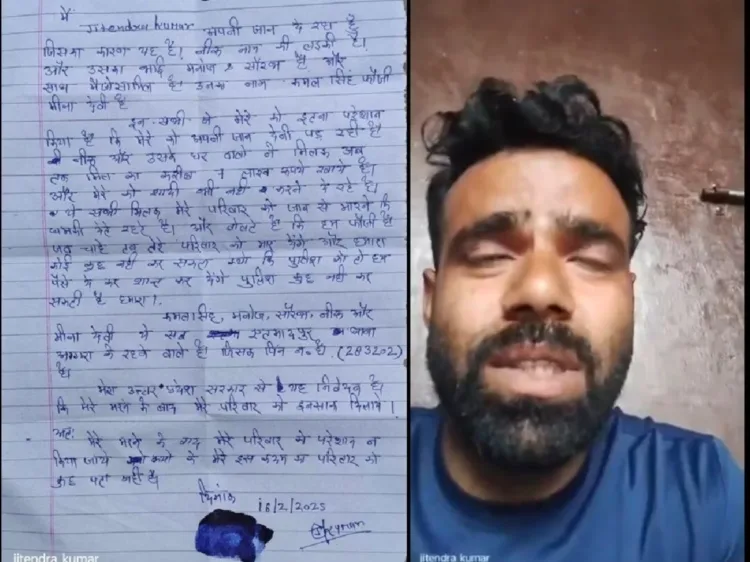 मैं
Jitendra kumar अपनी जान दे रहा हूँ
जिसका कारण यह है। नीक नाम की लड़की है।
और उसका भाई मनोज, सौरभ है और
साथ में शामिल है उनका नाम कमल सिंह फौजी
मीना देवी है
इन सभी ने मेरे को इतना परेशान
किया है कि मेरे को अपनी जान देनी पड़ रही है
नीक और उसके घर वालो ने मिलकर अब
तक मिल का करीब 7 लाख रूपये खाये है।
और मेरे को शादी भी नही करने दे रहे है।
ये सभी मिलकर मेरे परिवार को जान से मारने कि
धमकी देते रहते है। और बोलते है कि हम फौजी है
जब चाहे तब तेरे परिवार को मार देंगे और हमारा
कोई कुछ नही कर सकता क्यो कि पुलिस को तो हम
पैसे दे कर शान्त कर देंगे पुलिस कुछ नही कर
सकती है हमारा।
कमल सिंह, मनोज, सौरभ, नीक और
मीना देवी ये सब एत्मादपुर थाना
आगरा के रहने वाले है। जिसका पिन न. है. (283202)
है।
मेरा उत्तर प्रदेश सरकार से यह निवेदन है।
कि मेरे मरने के बाद मेरे परिवार को इनसाफ दिलाये।
अतः मेरे मरने के बाद मेरे परिवार को परेशान न
किया जाये क्यो के मेरे इस कदम का परिवार को
कुछ पता नही है।
दिनांक
16/2/2025
jitendra_kumar
jitendra kumar